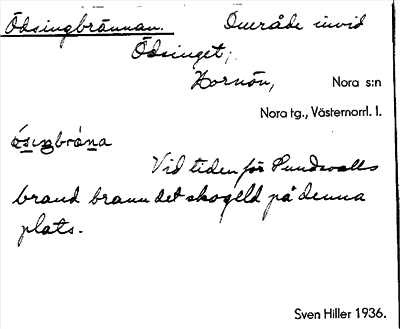 Ödsingbrännan. Område invid
Ödsinget;
Hornön, Nora s:n
Nora tg., Västernorrl. l.
ósiŋbròna
Vid tiden för Sundsvalls
brand brann det skogeld på denna
plats.
Sven Hiller 1936.